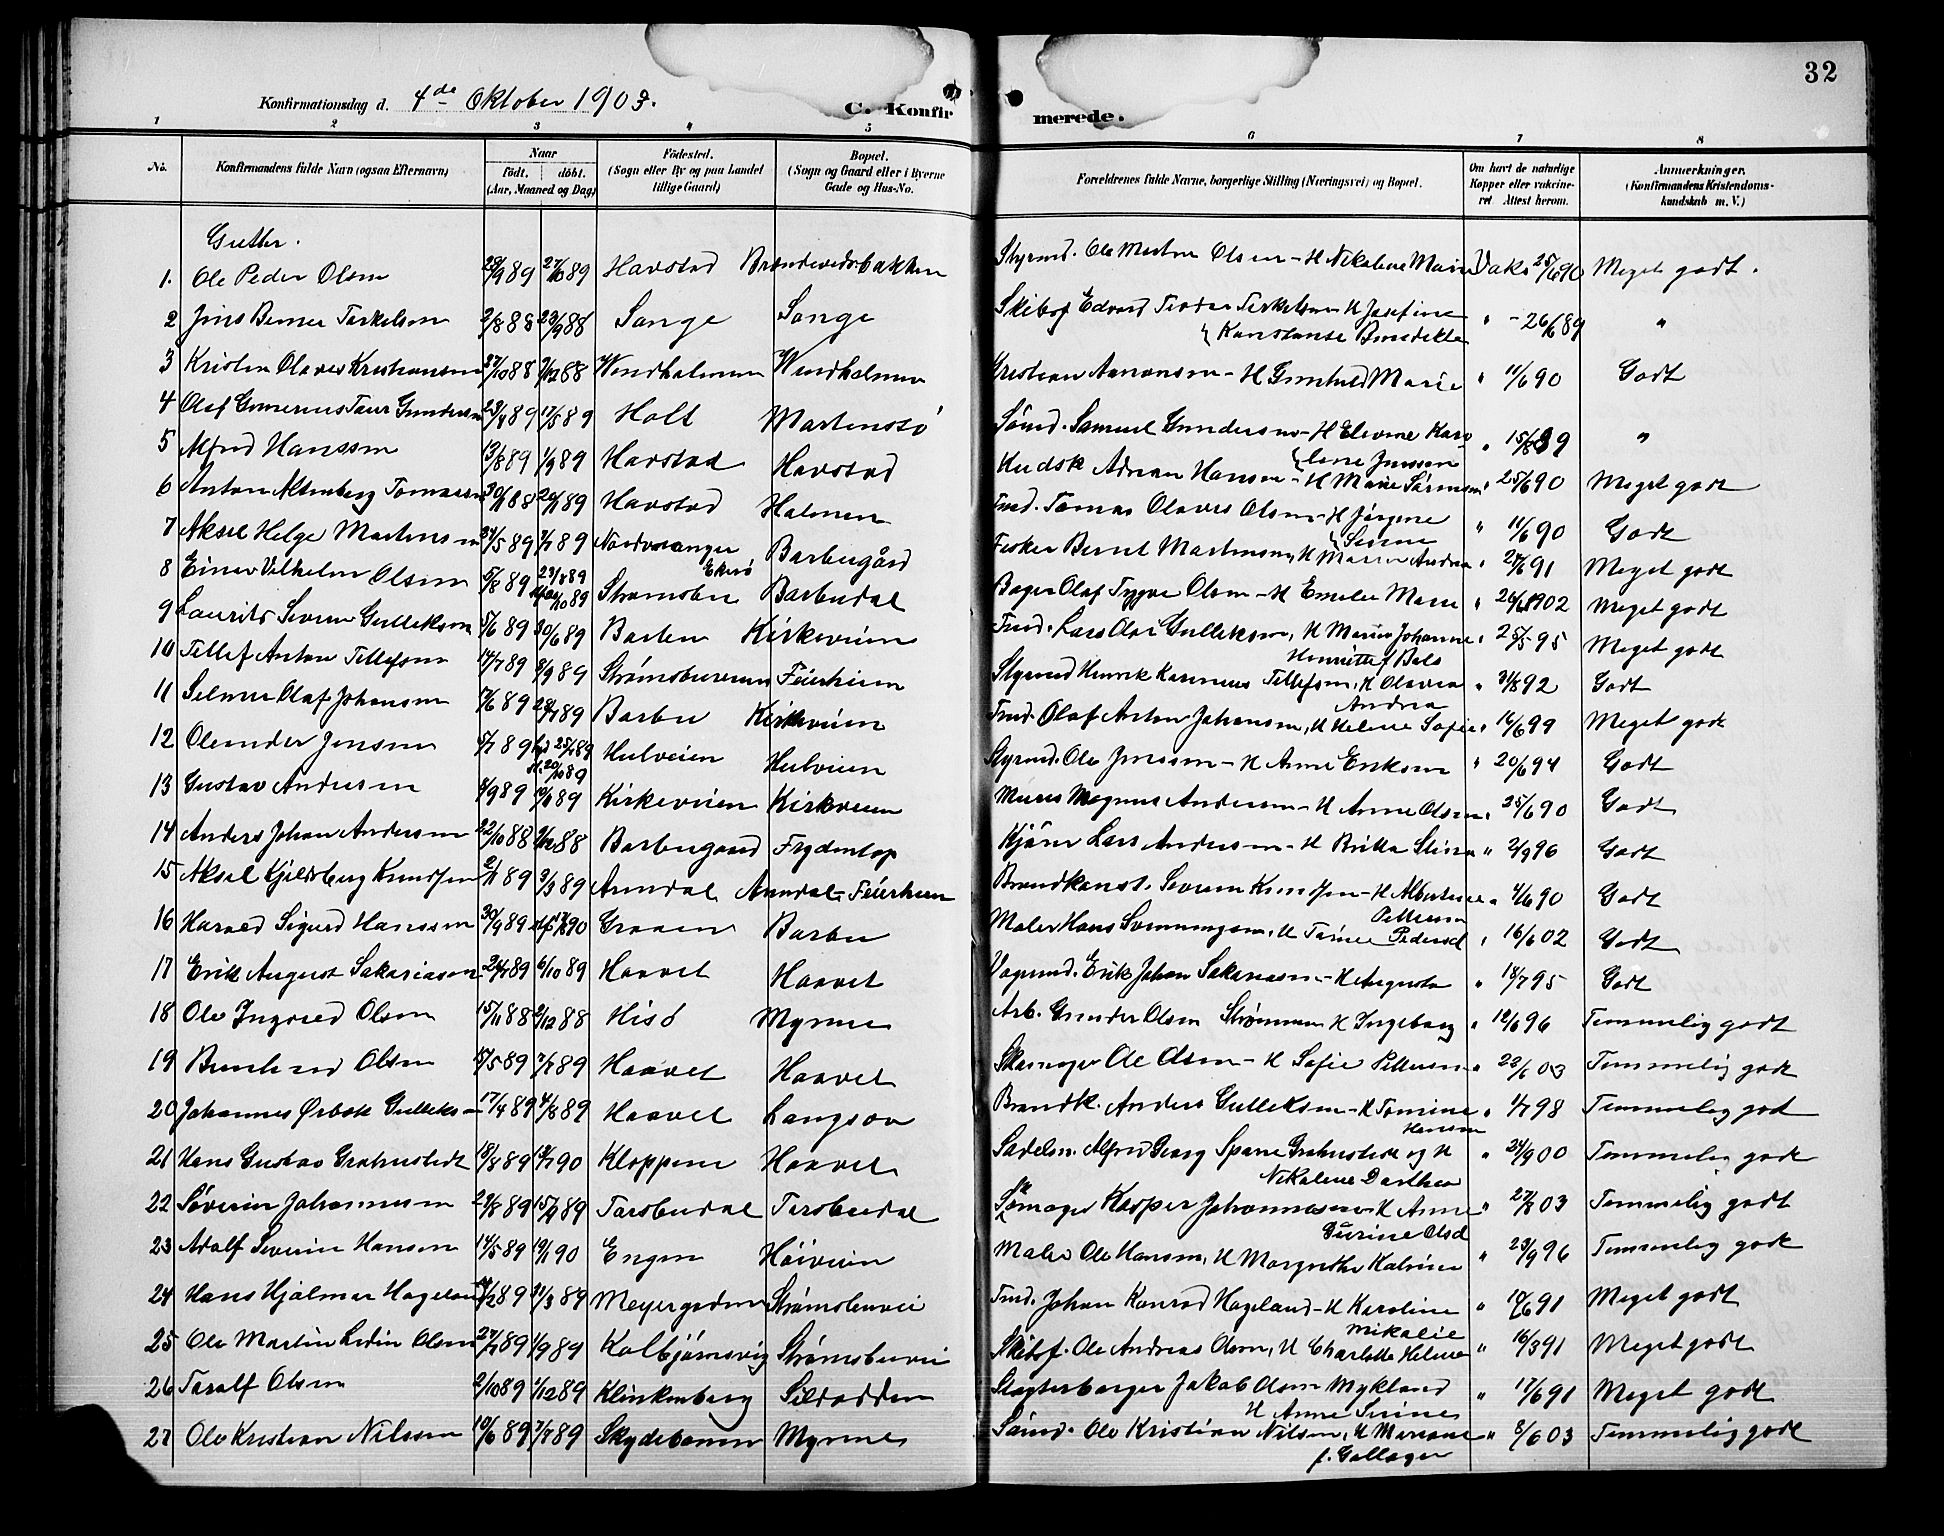 32
Konfirmationsdag d. 4de Oktober 1903.
C. Konfirmerede.
1 2 3 4 5 6 7 8
No. Konfirmandens fulde Navn (ogsaa Efternavn) Naar født. døbt. (Aar, Maaned og Dag) Fødested. (Sogn eller By og paa Landet tillige Gaard) Bopæl. (Sogn og Gaard eller i Byerne Gade og Hus-No. Forældrenes fulde Navne, borgerlige Stilling (Næringsvei) og Bopæl. Om havt de naturlige Kopper eller vakcineret Attest herom. Anmærkninger. (Konfirmandens Kristendomskundskab m. V.)
Gutter.
1. Ole Peder Olsen 28/9 89 27/10 89 Havstad Styrmd. Ole Morten Olsen - H Nikoline Marie Vaks 25/6 90 Meget godt.
2 Jens Berner Terkelsen 2/8 88 23/9 88 Songe Songe Skibsf Edvard Terkelsen H Josefine Konstanse Benedikte " - 26/6 89 "
3 Kristen Olaves Kristiansen 27/10 88 Windholmen Windholmen Kristian Aanonsen - H Gunhild Marie " 11/6 90 Godt
4 Olaf Gunerius Gundersen 23/4 89 17/5 89 Holt Martensø Sømd. Samuel Gundersen - H Elevine Karoline Jenssen " "
5 Alfred Hanssen 13/8 89 1/9 89 Havstad Havstad Kudsk Adrian Hansen - H Marie Sørensen " 25/6 90 Meget godt
6 Anton Altenberg Tomassen 20/1 89 Havstad Holmen Tmd. Tomas Olaves Olsen - H Jørgine " 11/6 90 Godt
7 Aksel Helge Martensen 27/5 89 7/7 89 Barbugård Fisker Bernt Martensen, H Maren Andrea " Meget godt
8 Einar Vilhelm Olsen 5/8 89 23/8 89 Strømsbu Barbudal Bager Olaf Trygve Olsen - H Emelie Marie " 26/6 1902 Meget godt
9 Laurits Severin Gulleksen 5/6 89 30/6 89 Barbu Kirkeveien Tmd. Lars Olai Gulleksen, H Maren Johanne Henriette f Bols " 25/5 95 Meget godt
10 Tellef Anton Tellefsen 14/7 89 8/9 89 Strømsbuveien Feierheien Styrmd Henrik Rasmus Tellefsen, H Olavia Andrea " 31/8 92 Godt
11 Selmer Olaf Johansen 17/6 89 28/7 89 Barbu Kirkeveien Tmd. Olaf Anton Johansen, H Helene Sofie " 16/6 99 Meget godt
12 Oleander Jensen 5/7 89 25/7 89 20/10 89 Hulveien Hulveien Styrmd. Ole Jenssen - H Anne Eriksen " 20/6 94 Godt
13 Gustav Andersen 4/9 89 Kirkeveien Kirkeveien Murer Magnus Andersen - H Anne Olsen " 25/6 90 Godt
14 Anders Johan Andersen 22/10 88 Barbugaard Frydentop Kjører Lars Andersen - H Britta Stina " 2/9 96 Godt
15 Aksel Kjeldsberg Knudsen 2/1 89 3/3 89 Arendal Arendal - Feierheien Brandkonst. Severin Knudsen - H Albertine Pettersen " 4/6 90 Godt
16 Harald Sigurd Hanssen 30/9 89 Graaen Barbu Maler Hans Svenningsen, H Pedersd " 16/6 02 Godt
17 Erik August Sakariasen 24/7 89 6/10 89 Haavet Haavet Vognmd. Erik Johan Sakariasen - H Augusta " 18/7 95 Godt
18 Ole Ingvald Olsen 15/11 88 2/12 88 Hisø Myrene Arb. Gunder Olsen Strømmen H Ingeborg " 12/6 96 Temmelig godt
19 Bernhard Olsen 15/5 89 7/7 89 Haavet Haavet Skomager Ole Olsen - H Sofie Pettersen " 22/6 03 Temmelig godt
20 Johannes Ørbæk Gulleksen 17/4 89 4/8 89 Haavet Langsæv Brandk. Anders Gulleksen - H Tomine Hansen " 1/7 98 Temmelig god
21 Hans Gustav Grahnstedt 18/8 89 Kloppene Haavet Sadelm. Alfred Georg Grahnstedt og H Nikoline Dorthea " 24/9 00 Temmelig godt
22 Severin Johannesen 22/8 89 15/9 89 Torsbudal Torsbudal Skomager Kasper Johannesen H Anne Gurine Olsd " 27/8 03 Temmelig godt
23 Adolf Severin Hansen 14/5 89 19/1 90 Engen Høiveien Maler Ole Hansen, H Margrethe Katrine " 23/9 96 Temmelig godt
24 Hans Hjalmar Hageland 31/3 89 Meyergaden Strømsbuvei Tmd. Johan Konrad Hageland - H Karoline Mikalie " 10/6 91 Meget godt
25 Ole Martin Ledin Olsen 27/7 89 1/9 89 Kolbjørnsvig Strømsbuvei Skibsf. Ole Andreas Olsen, H Charlotte Helene " 16/3 91 Meget godt
26 Toralf Olsen 2/10 89 1/12 89 Klinkenberg Sildodden Slagterborger Jakob Olsen Mykland H Anne Serine " 17/6 91 Meget godt
27 Ole Kristian Nilssen 10/6 89 7/7 89 Skydebanen Myrene Sømd. Ole Kristian Nilsen, H Mariane f. Gallager " 8/6 03 Temmelig godt